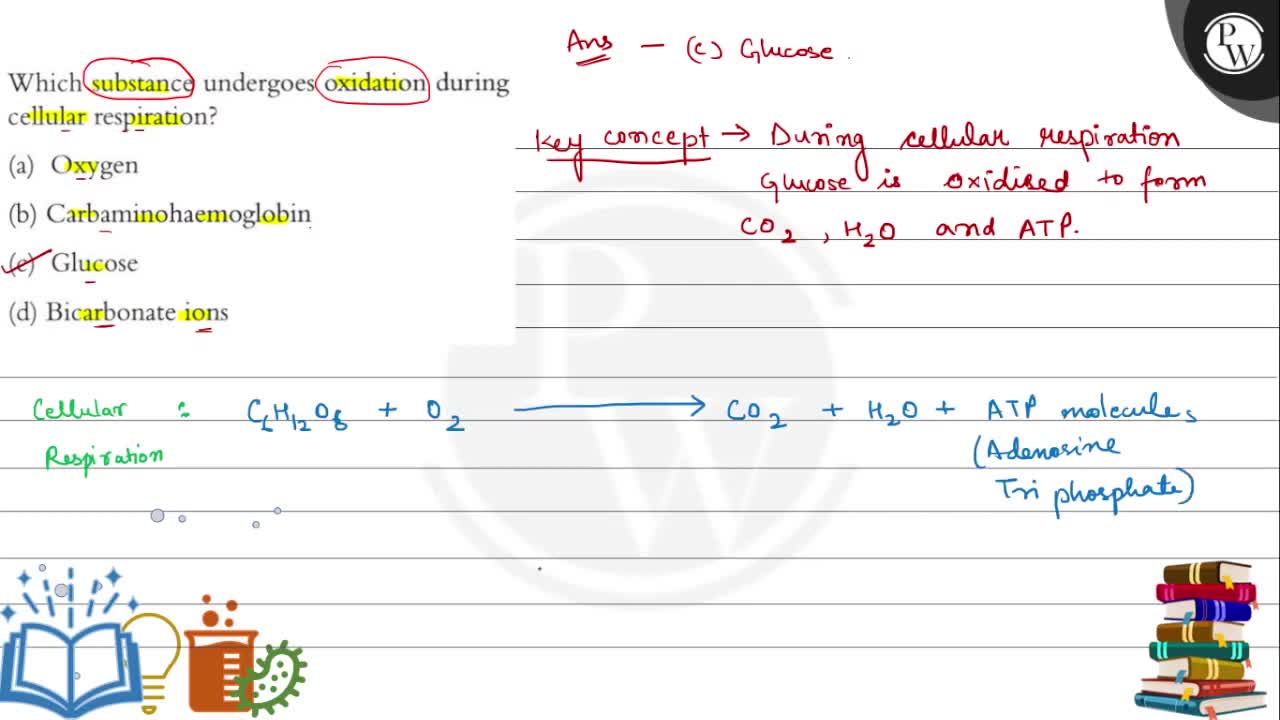 Which substance undergoes oxidation during
cellular respiration?
(a) Oxygen
(b) Carbaminohaemoglobin
(c) Glucose
(d) Bicarbonate ions
Ans - (c) Glucose.
Key concept → During cellular respiration
Glucose is oxidised to form
CO2, H2O and ATP.
PW
Cellular : C6H12O6 + O2 → CO2 + H2O + ATP molecules
Respiration
(Adenosine
Tri phosphate)